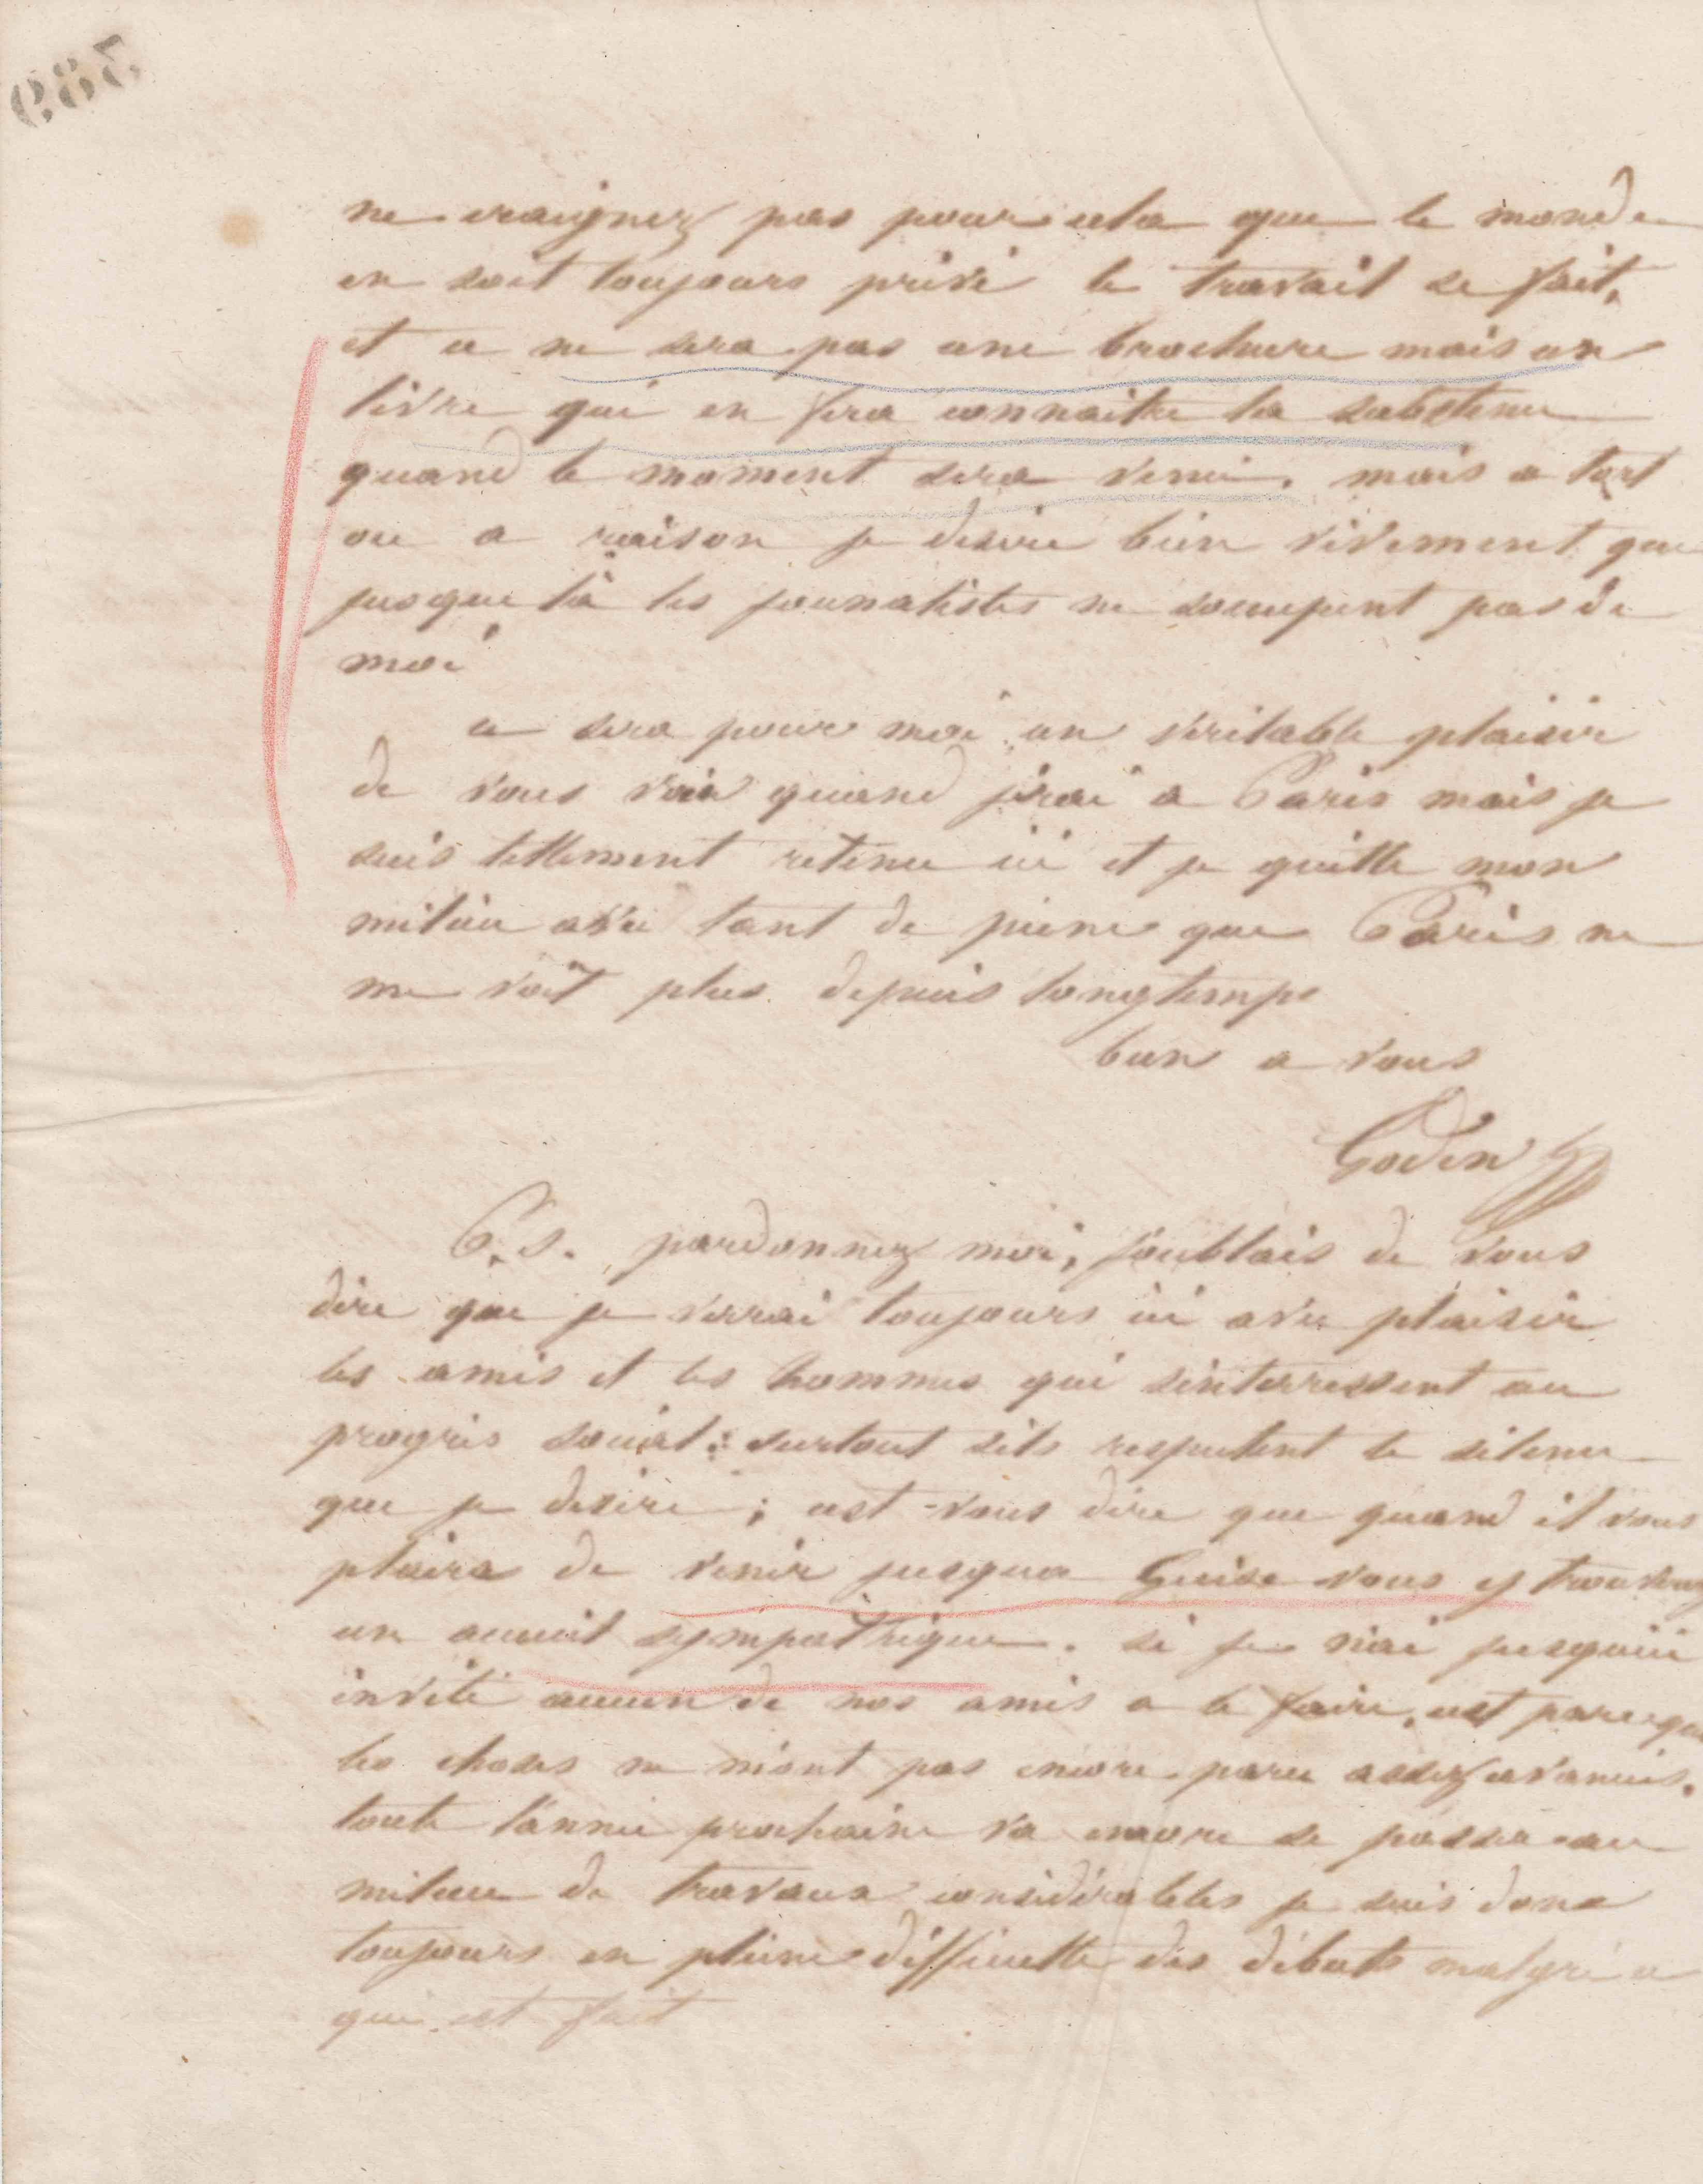 389
ne craignez pas pour cela que le monde
en soit toujours privé le travail se fait,
et ce ne sera pas une brochure mais un
livre qui en fera connaitre la substence
quand le moment sera venu. mais a tort
ou a raison je desire bien vivement que
jusque là les journalistes ne soccupent pas de
moi
ce sera pour moi un véritable plaisir
de vous voir quand j'irai a Paris mais je
suis tellement retenu ici et je quitte mon
milieu avec tant de peine que Paris ne
me voit plus depuis longtemps
bien a vous
Godin
P.S. pardonnez moi, j'oublais de vous
dire que je verrai toujours ici avec plaisir
les amis et les hommes qui sinterressent au
progrès social : surtout sils respectent le silence
que je desire ; cest vous dire que quand il vous
plaira de venir jusqua Guise vous y trouverez
un accueil sympathique. si je n'ai jusquici
invité aucun de nos amis a le faire, cest parceque
les choses ne m'ont pas encore paru assez avancées.
toute l'année prochaine va encore se passer au
milieu de travaux considérables je suis donc
toujours en pleine difficulté des débuts malgré ce
qui est fait